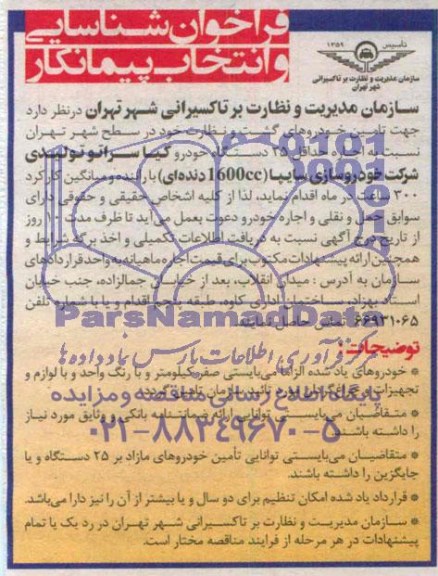 فراخوان شناسایی
و انتخاب پیمانکار
تأسیس ۱۳۵۹
سازمان مدیریت و نظارت بر تاکسیرانی
شهر تهران
سازمان مدیریت و نظارت بر تاکسیرانی شهر تهران در نظر دارد
جهت تامین خودروهای گشت و نظارت خود در سطح شهر تهران
نسبت حداقل ۲۵ دستگاه خودرو کیا سراتو تولیدی
شرکت خودروسازی سایپا (1600cc دنده‌ای) با راننده و میانگین کارکرد
۳۰۰ ساعت در ماه اقدام نماید، لذا از کلیه اشخاص حقیقی و حقوقی دارای
سوابق حمل و نقلی و اجاره خودرو دعوت بعمل می‌آید تا ظرف مدت ۱۰ روز
از تاریخ درج آگهی نسبت به دریافت اطلاعات تکمیلی و اخذ برگ شرایط و
همچنین ارائه پیشنهادات مکتوب برای قیمت اجاره ماهیانه به واحد قراردادهای
سازمان به آدرس: میدان انقلاب، بعد از خیابان جمالزاده، جنب خیابان
استاد بهزاد، ساختمان اداری کاوه، طبقه اقدام و یا با شماره تلفن
۶۶۹۳۱۰۶۵ تماس حاصل نمایند.
ParsNamadData
مرکز فرآوری اطلاعات پارس نماد داده‌ها
توضیحات:
* خودروهای یاد شده الزاما می‌بایستی صفر کیلومتر و با رنگ واحد و با لوازم و
تجهیزات مورد تائید سازمان
پایگاه اطلاع رسانی مناقصه و مزایده
* متقاضیان می‌بایستی توانایی ارائه ضمانتنامه بانکی و وثایق مورد نیاز
را داشته باشند.
۰۲۱-۸۸۳۴۹۶۷۰-۵
* متقاضیان می‌بایستی توانایی تأمین خودروهای مازاد بر ۲۵ دستگاه و یا
جایگزین را داشته باشند.
* قرارداد یاد شده امکان تنظیم برای دو سال و یا بیشتر از آن را نیز دارا می‌باشد.
* سازمان مدیریت و نظارت بر تاکسیرانی شهر تهران در رد یک یا تمام
پیشنهادات در هر مرحله از فرایند مناقصه مختار است.